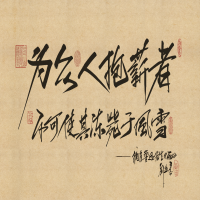 为众人抱薪者
不可使其冻毙于风雪